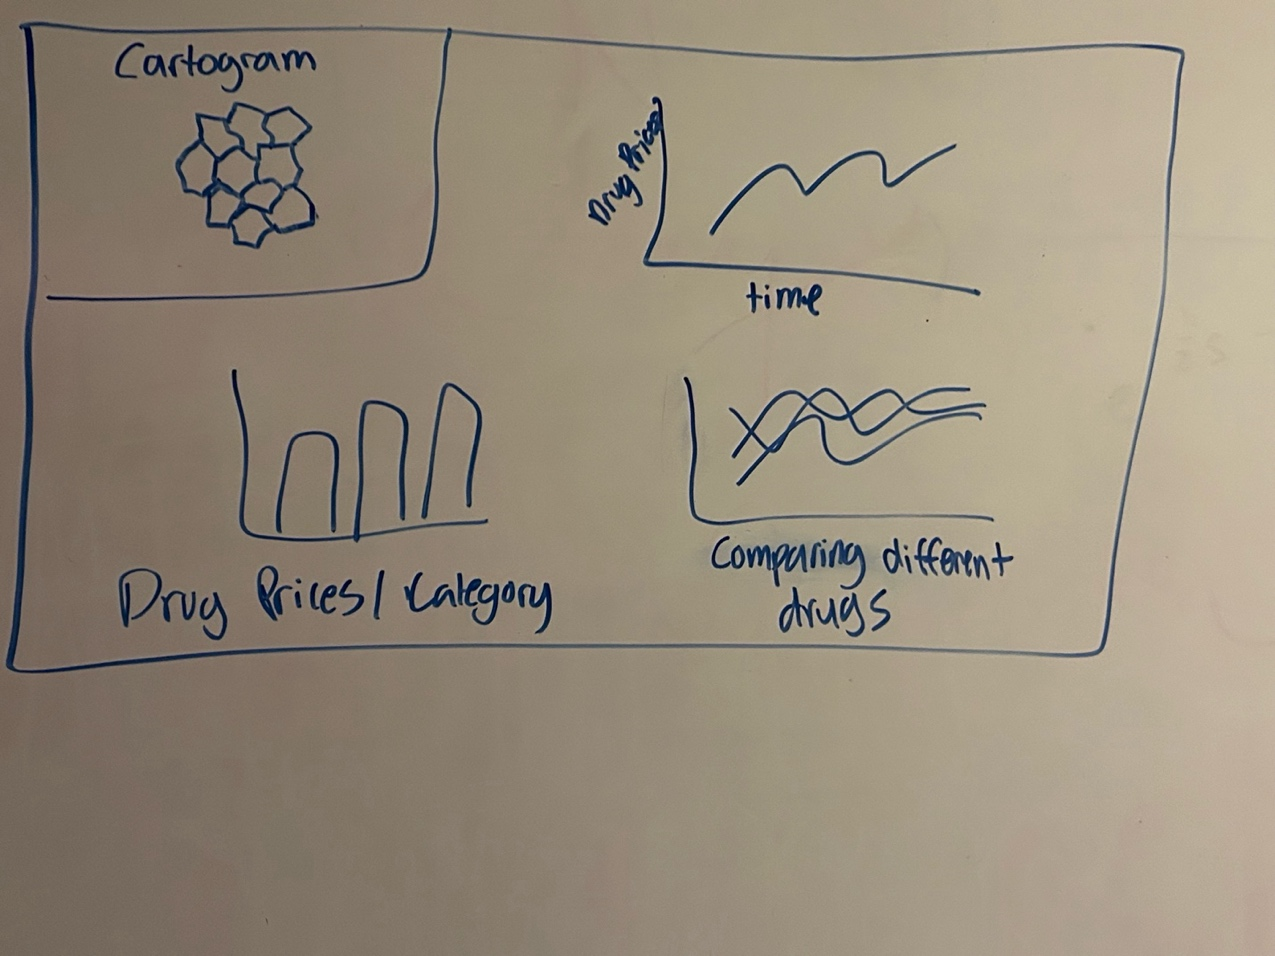 Cartogram
Drug Prices
time
Drug Prices/Category
Comparing different
drugs